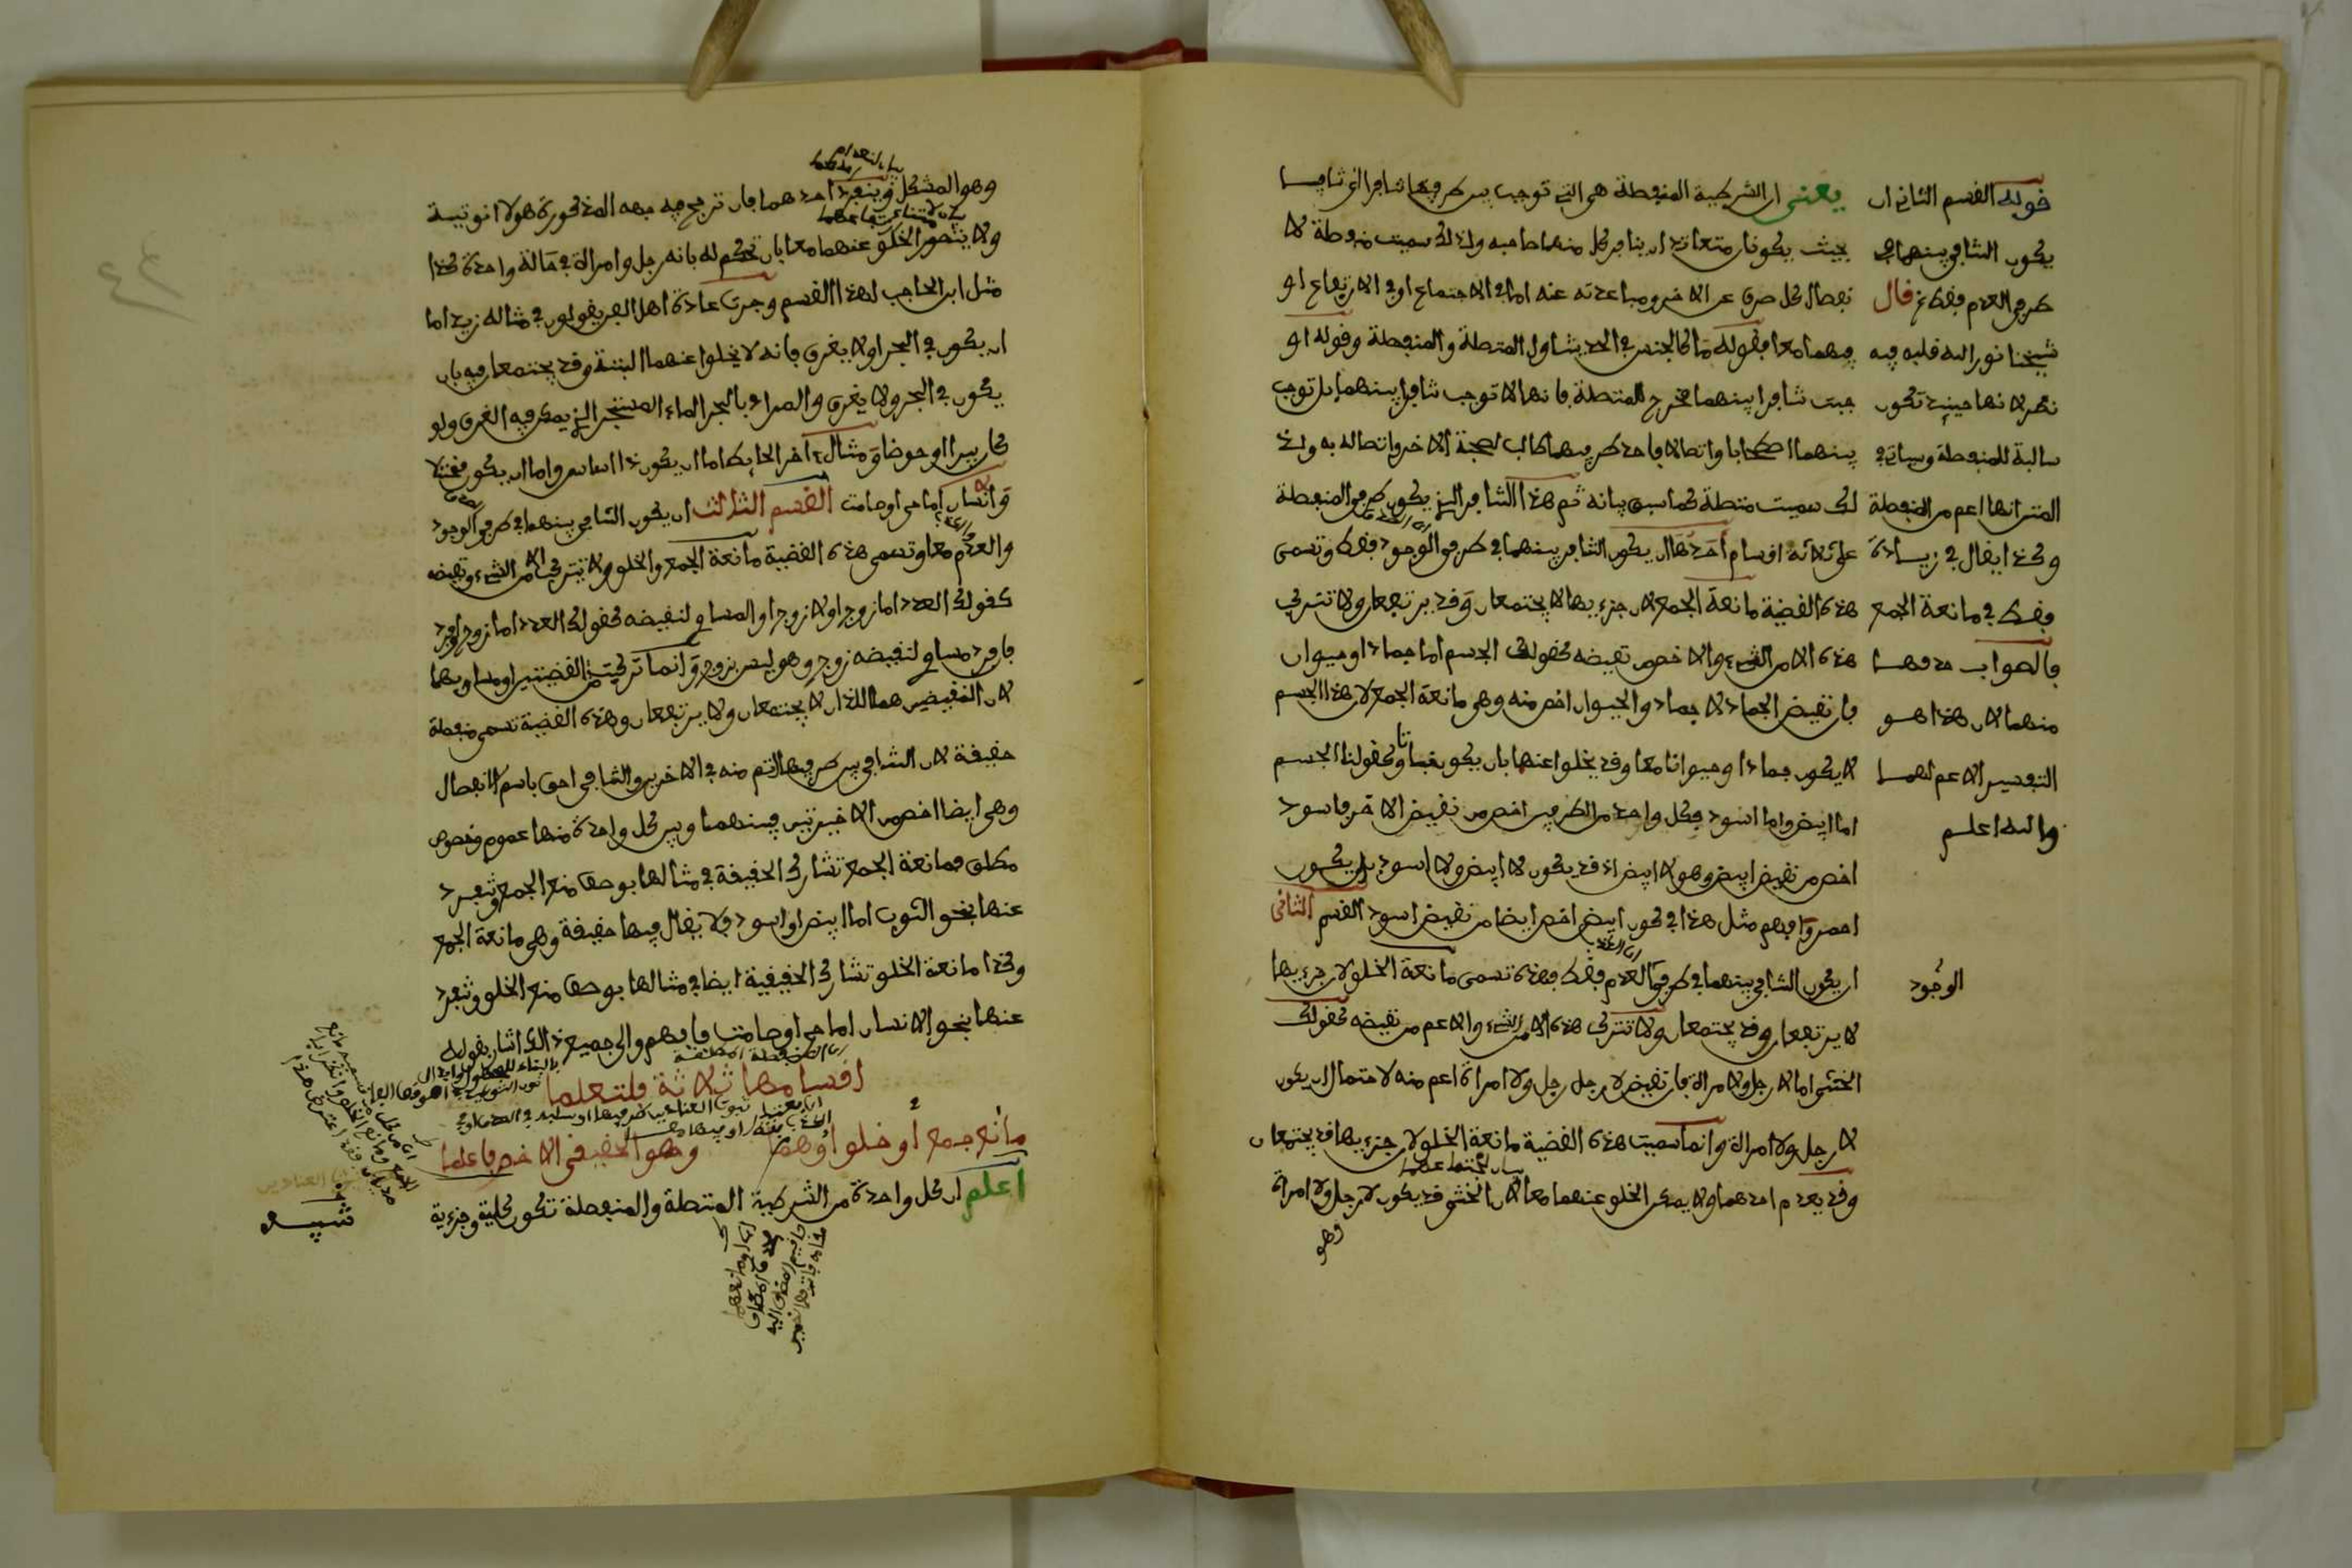 يعنى ان الشرطية المنفصلة هى التى توجب بين طرفيها تنافرا اى تنافيا
بحيث يكونان متعاندان ينافر كل منهما صاحبه ولذلك سميت منفصلة لا
نفصال كل طرف عن الاخر ومباعدته عنه اما فى الاجتماع او فى الارتفاع او
فيهما معا فقوله ما كالجنس فى الحد يتناول المتصلة والمنفصلة وقوله او
جبت تنافرا بينهما مخرج للمتصلة فانها لا توجب تنافرا بينهما بل توجب
بينهما اصطحابا واتصالا فاحد طرفيهما طالب لصحبة الاخر واتصاله به ولذ
لك سميت متصلة كما سبق بيانه ثم هذا التنافر الذى يكون طرفى المنفصلة
على ثلاثة اقسام احدها ان يكون التنافر بينهما فى طرفى الوجود فقط وتسمى
هذه القضية مانعة الجمع لان جزءيها لا يجتمعان وقد يرتفعان ولا تتركب
هذه الا من الشىء والاخص من نقيضه كقولك الجسم اما جماد او حيوان
فان نقيض الجماد لا جماد والحيوان اخص منه وهى مانعة الجمع لان هذا الجسم
لا يكون جمادا وحيوانا معا وقد يخلوا عنهما بان يكون نباتا وكقولنا الجسم
اما ابيض واما اسود فكل واحد من الطرفين اخص من نقيض الاخر فاسود
اخص من نقيض ابيض وهو لا ابيض اذ قد يكون لا ابيض ولا اسود بل يكون
احمر وافهم مثل هذا فى كون ابيض اخص ايضا من نقيض اسود القسم الثانى
ان يكون التنافى بينهما فى طرفى العدم فقط فهذه تسمى مانعة الخلو لان جزءيها
لا يرتفعان وقد يجتمعان ولا تتركب هذه الا من الشىء والاعم من نقيضه كقولك
الخنثى اما لا رجل ولا امراة فان نقيض لا رجل رجل ولا امراة اعم منه لاحتمال ان يكون
لا رجل ولا امراة وانما سميت هذه القضية مانعة الخلو لان جزءيها قد يجتمعان
وقد يعدم احدهما ولا يمكن الخلو عنهما معا لان الخنثى قد يكون لا رجل ولا امراة
وهو
قوله القسم الثانى ان
يكون التنافى بينهما فى
طرفى العدم فقط قال
شيخنا نور الله قلبه فيه
نظر لانها حينئذ تكون
سالبة للمنفصلة وسياتى فى
المتن انها اعم من المنفصلة
وكذا يقال فى زيادة
فقط فى مانعة الجمع
فالصواب حذفها
منهما لان هذا هو
التفسير الاعم لهما
والله اعلم
الوجود
وهو المشكل وينفرد احدهما فان ترجح فيه جهه الذكورة فهو لا انوثية
ولا يتصور الخلو عنهما معا بان تحكم له بانه رجل وامراة فى حالة واحدة كذا
مثل ابن الحاجب لهذا القسم وجرت عادة اهل الفن يقولون فى مثاله زيد اما
ان يكون فى البحر او لا يغرق فانه لا يخلوا عنهما البتة وقد يجتمعا فيه بان
يكون فى البحر ولا يغرق والمراد بالبحر الماء المستبحر الذى يمكن فيه الغرق ولو
كان بيرا او حوضا ومثال اخر الحايط اما ان يكون ذا اساس واما ان يكون مختلا
والانسان اما حى او صامت القسم الثالث ان يكون التنافى بينهما فى طرفى الوجود
والعدم معا وتسمى هذه القضية مانعة الجمع والخلو ولا تتركب الا من الشىء ونقيضه
كقولك العدد اما زوج او لا زوج او المساوى لنقيضه كقولك العدد اما زوج او فرد
فافرد مساوى لنقيضه زوج وهو ليس بزوج وانما تركبت من النقيضين او مساويهما
لان النقيضين هما اللذان لا يجتمعان ولا يرتفعان وهذه القضية تسمى منفصلة
حقيقة لان التنافى بين طرفيها اتم منه فى الاخريين والتنافى احق باسم الانفصال
وهى ايضا اخص من الاخيرتين فبينهما وبين كل واحدة منهما عموم وخصوص
مطلق فمانعة الجمع تشارك الحقيقة فى مثالها بوصف منع الجمع وتنفرد
عنها بنحو الثوب اما ابيض او اسود فلا يقال فيها حقيقة وهى مانعة الجمع
وكذا مانعة الخلو تشارك الحقيقية ايضا فى مثالها بوصف منع الخلو وتنفرد
عنها بنحو الانسان اما حى او صامت فافهم والى جميع ذلك اشار بقوله
اقسامها ثلاثة فلتعلما
مانع جمع أو خلو أوهما وهو الحقيقى الاخص فاعلما
اعلم ان كل واحدة من الشرطية المتصلة والمنفصلة تكون كلية وجزءية